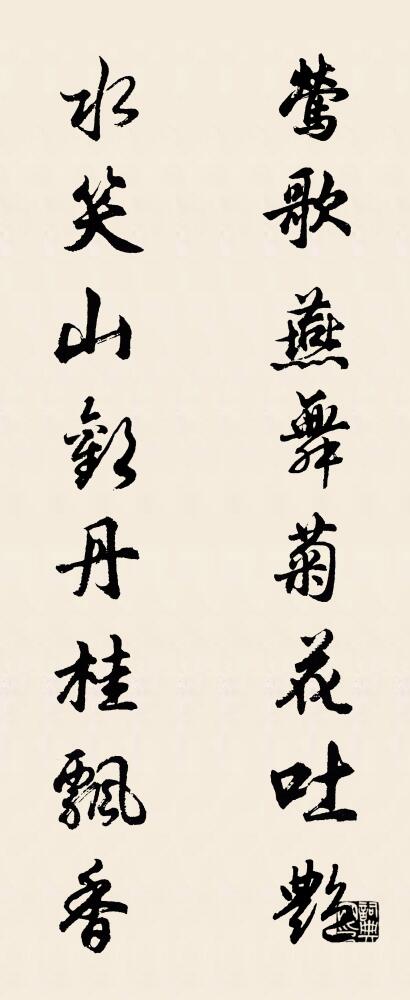 莺歌燕舞菊花吐艷
水笑山歡丹桂飄香